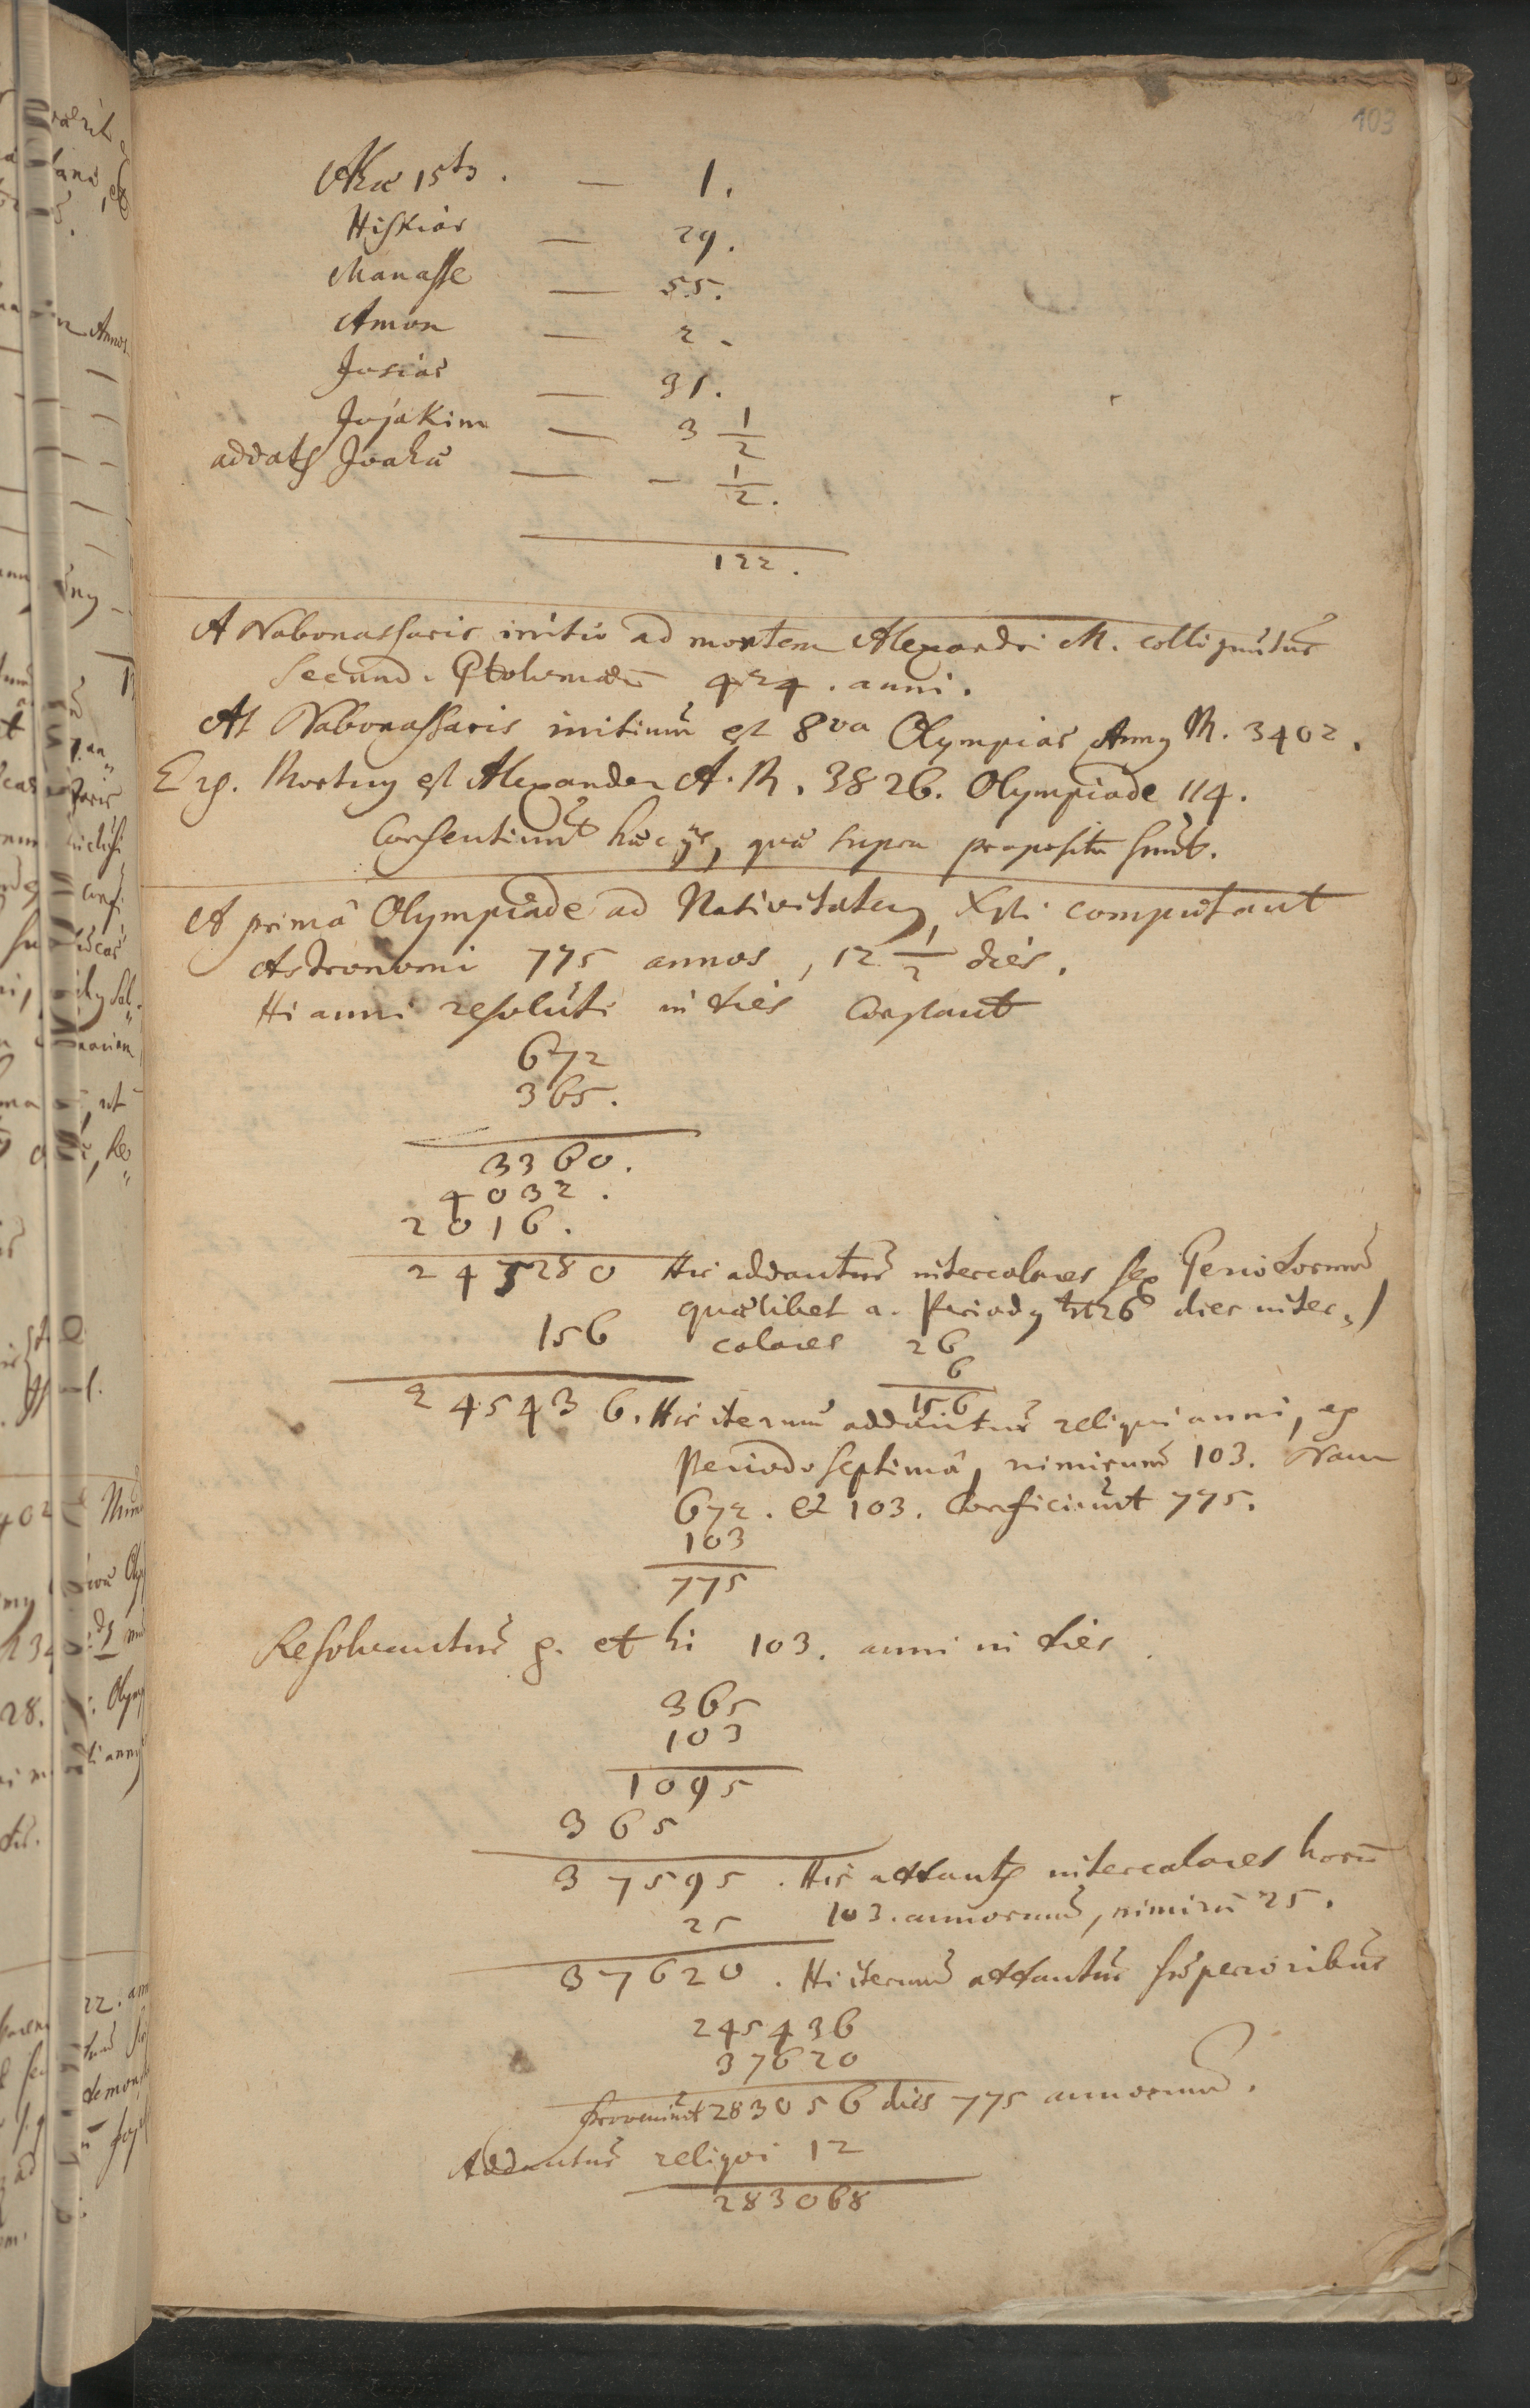 103
Ahae 15ty. — 1.
Hiskias — 29.
Manasse — 55.
Amon — 2.
Josias — 31.
Jojakim — 3 1/2
addatur Joaha — - 1/2.
122.
A Nabonassaris initio ad mortem Alexandri M. colliguntur
secund. Ptolemaeu 424. anni.
At Nabonassaris initium est 8va Olympias Anny M. 3402.
Erg. Mortuy est Alexander A. M. 3826. Olympiade 114.
Consentiunt haec ijs, quae supra proposita sunt.
A primâ Olympiade ad Nativitatem Xsti computant
Astronomi 775 annos, 12 1/2 dies.
Hi anni resoluti in dies constant
672
365.
3360.
4032.
2016.
245280 His addantur intercalares sex Periodorum
quaelibet a. Periody ht 26 dies inter-
156 calares 26
6
156
245436. His iterum addantur reliqui anni, ex
Periodo septimâ, nimirum 103. Nam
672. et 103. conficiunt 775.
103
775
Resolvantur g. et hi 103. anni in dies.
365
103
1095
365
37595. His addantur intercalares horū
25 103. annorum, nimirū 25.
37620. Hi iterum addantur superioribus
245436
37620
Proveniunt 283056 dies 775 annorum.
Addantur reliqui 12
283068